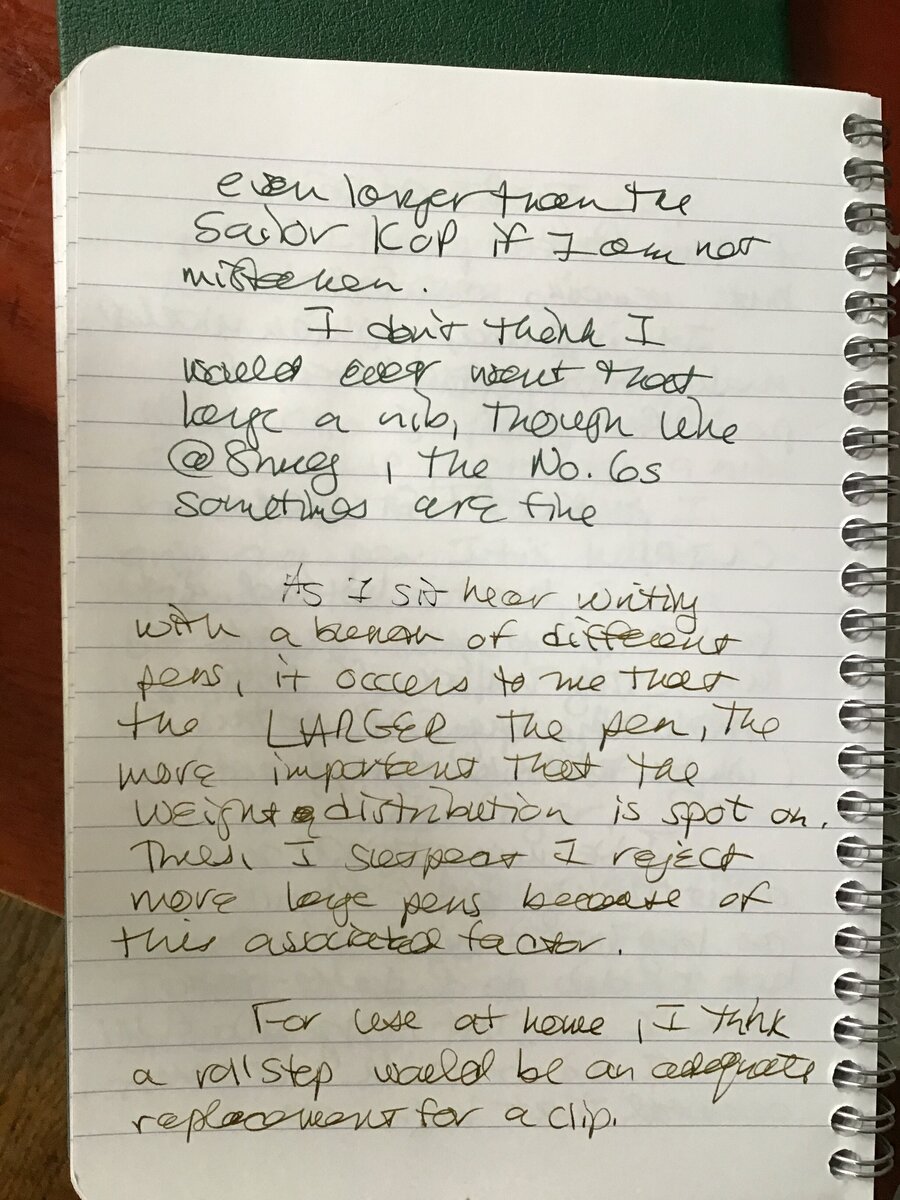 even longer than the
Sailor KOP if I am not
mistaken.
I don't think I
would ever want that
large a nib, though like
@Shrug, the No. 6s
sometimes are fine
As I sit hear writing
with a bunch of different
pens, it occurs to me that
the LARGER the pen, the
more important that the
weight distribution is spot on.
Thus, I suspect I reject
more large pens because of
this associated factor.
For use at home, I think
a roll stop would be an adequate
replacement for a clip.